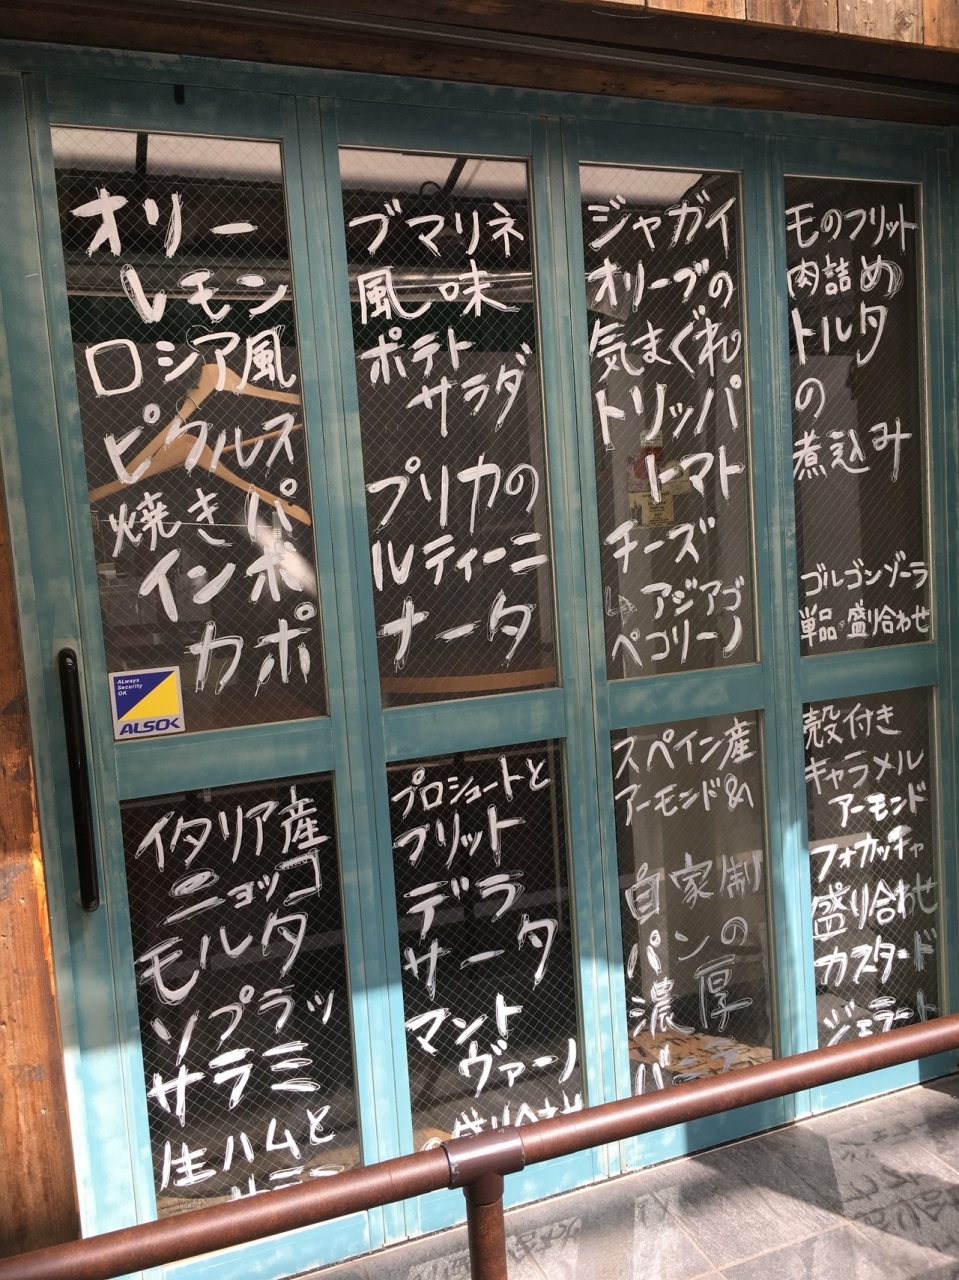 オリー
レモン
ロシア風
ピクルス
焼きパ
インボ
カポ
ALways
Security
OK
ALSOK
イタリア産
ニョッコ
モルタ
ソプラッ
サラミ
生ハムと
ブマリネ
風味
ポテト
サラダ
プリカの
ルティーニ
ナータ
プロシュートと
ブリット
デラ
サータ
マント
ヴァーノ
盛り合わせ
ジャガイ
オリーブの
気まぐれ
トリッパ
トマト
チーズ
アジアゴ
ペコリーノ
スペイン産
アーモンド&ハ
自家制
パンの
濃厚
モのフリット
肉詰め
トルタ
の
煮込み
ゴルゴンゾーラ
単品・盛り合わせ
殻付き
キャラメル
アーモンド
フォカッチャ
盛り合わせ
カスタード
ジェラート